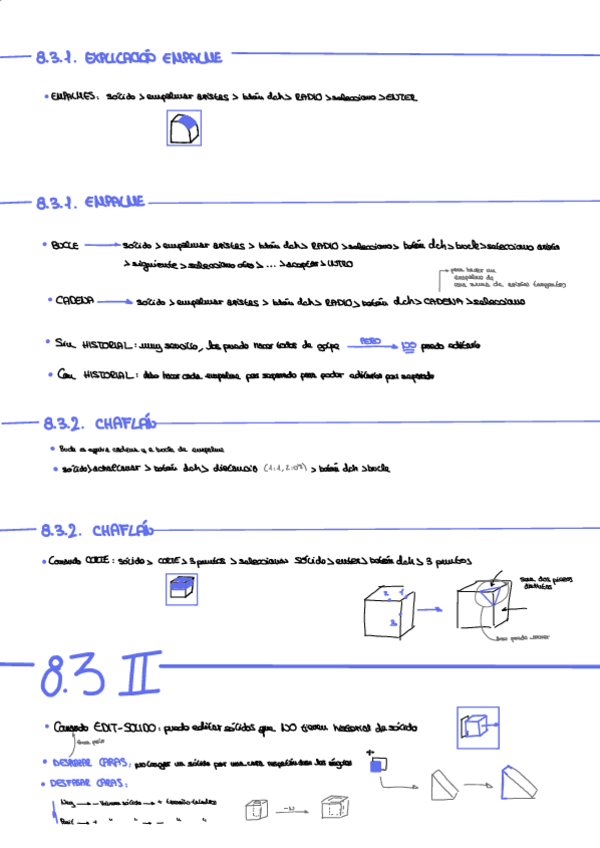 8.3.1. EXPLICACIÓ EMPALME
• EMPALMES: sólido > empalmar aristas > botón dch > RADIO > selecciono > ENTER
8.3.1. EMPALME
• BUCLE → sólido > empalmar aristas > botón dch > RADIO > selecciono > botón dch > bucle > selecciono arista
> siguiente > selecciono otros > ... > aceptar > INTRO
para hacer un
empalme de
una suma de aristas
• CADENA → sólido > empalmar aristas > botón dch > RADIO > botón dch > CADENA > selecciono
• Sin HISTORIAL: muy sencillo, los puedo hacer todos de golpe PERO → NO puedo editarlo
• Con HISTORIAL: debo hacer cada empalme por separado para poder editarlos por separado
8.3.2. CHAFLÁN
• Bucle a equiva cadena y a bucle de empalme
• sólido > achaflanar > botón dch > distancia > botón dch > bucle
8.3.2. CHAFLÁN
• Comando CORTE: sólido > CORTE > 3 puntos > selecciono SÓLIDO > enter > botón dch > 3 puntos
2 1
3
son dos piezas
distintas
8.3 II
• Comando EDIT-SOLIDO: puedo editar sólidos que NO tienen historial de sólido
• DESFASAR CARAS: prolongar un sólido por una cara respetándose los ángulos
• DESFASAR CARAS: